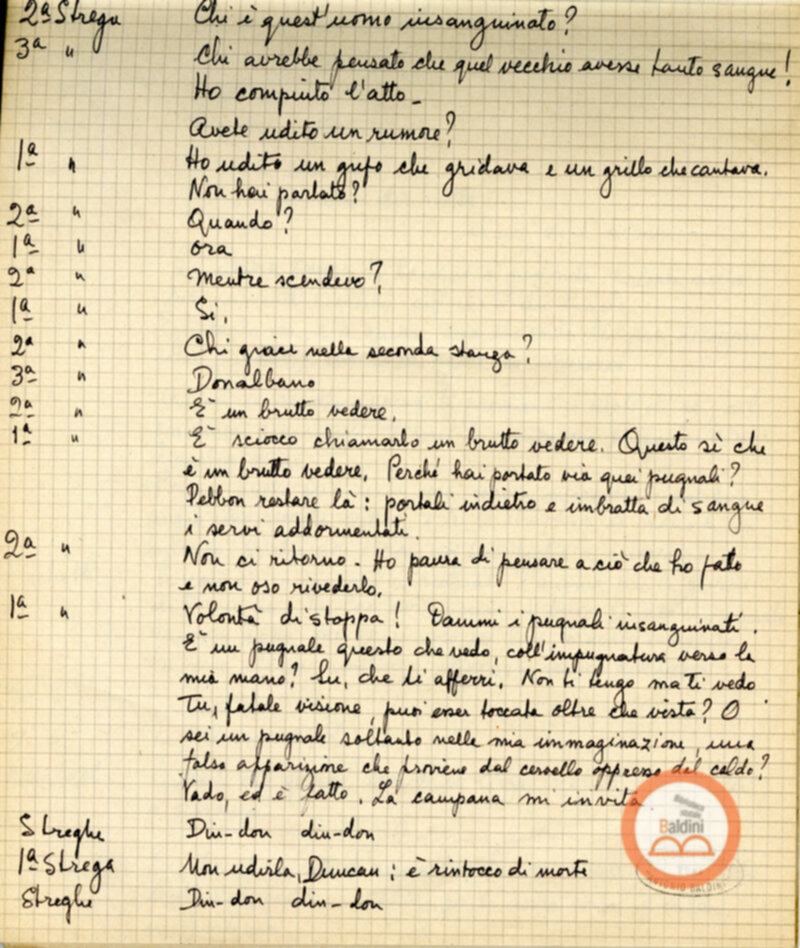 2ª Strega Chi è quest'uomo insanguinato?
3ª " Chi avrebbe pensato che quel vecchio avesse tanto sangue!
Ho compiuto l'atto -
Avete udito un rumore?
1ª " Ho udito un gufo che gridava e un grillo che cantava.
Non hai parlato?
2ª " Quando?
1ª " ora
2ª " Mentre scendevo?
1ª " Sì.
2ª " Chi giace nella seconda stanza?
3ª " Donalbano
2ª " È un brutto vedere.
1ª " È sciocco chiamarlo un brutto vedere. Questo sì che
è un brutto vedere. Perché hai portato via quei pugnali?
Debbon restare là: portali indietro e imbratta di sangue
i servi addormentati.
2ª " Non ci ritorno - Ho paura di pensare a ciò che ho fatto
e non oso rivederlo.
1ª " Volontà di stoppa! Dammi i pugnali insanguinati.
È un pugnale questo che vedo, coll'impugnatura verso la
mia mano? Su, che ti afferri. Non ti tengo ma ti vedo
Tu, fatale visione, puoi esser toccata oltre che vista? O
sei un pugnale soltanto nella mia immaginazione, una
falsa apparizione che proviene dal cervello oppresso dal caldo?
Vado, ed è fatto. La campana mi invita
Streghe Din-don din-don
1ª Strega Non udirla, Duncan: è rintocco di morte
Streghe Din-don din-don
Baldini
ANTONIO BALDINI